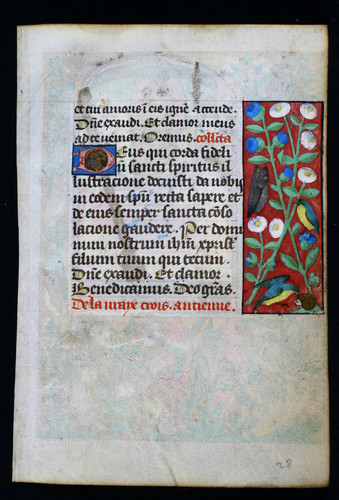 et tui amoris ī eis ignē accende.
Dn̄e exaudi. Et clamor meus
ad te veniat. Oremus. collecta
Deus qui corda fideli
ū sancti spiritus il
lustracione docuisti da nobis
in eodem spū recta sapere et
de eius semper sancta cōso
lacione gaudere. Per domi
num nostrum ihm̄ xp̄m
filium tuum qui tecum
Dn̄e exaudi. Et clamor.
Benedicamus. Deo grās.
De la vraye crois. antienne.
28